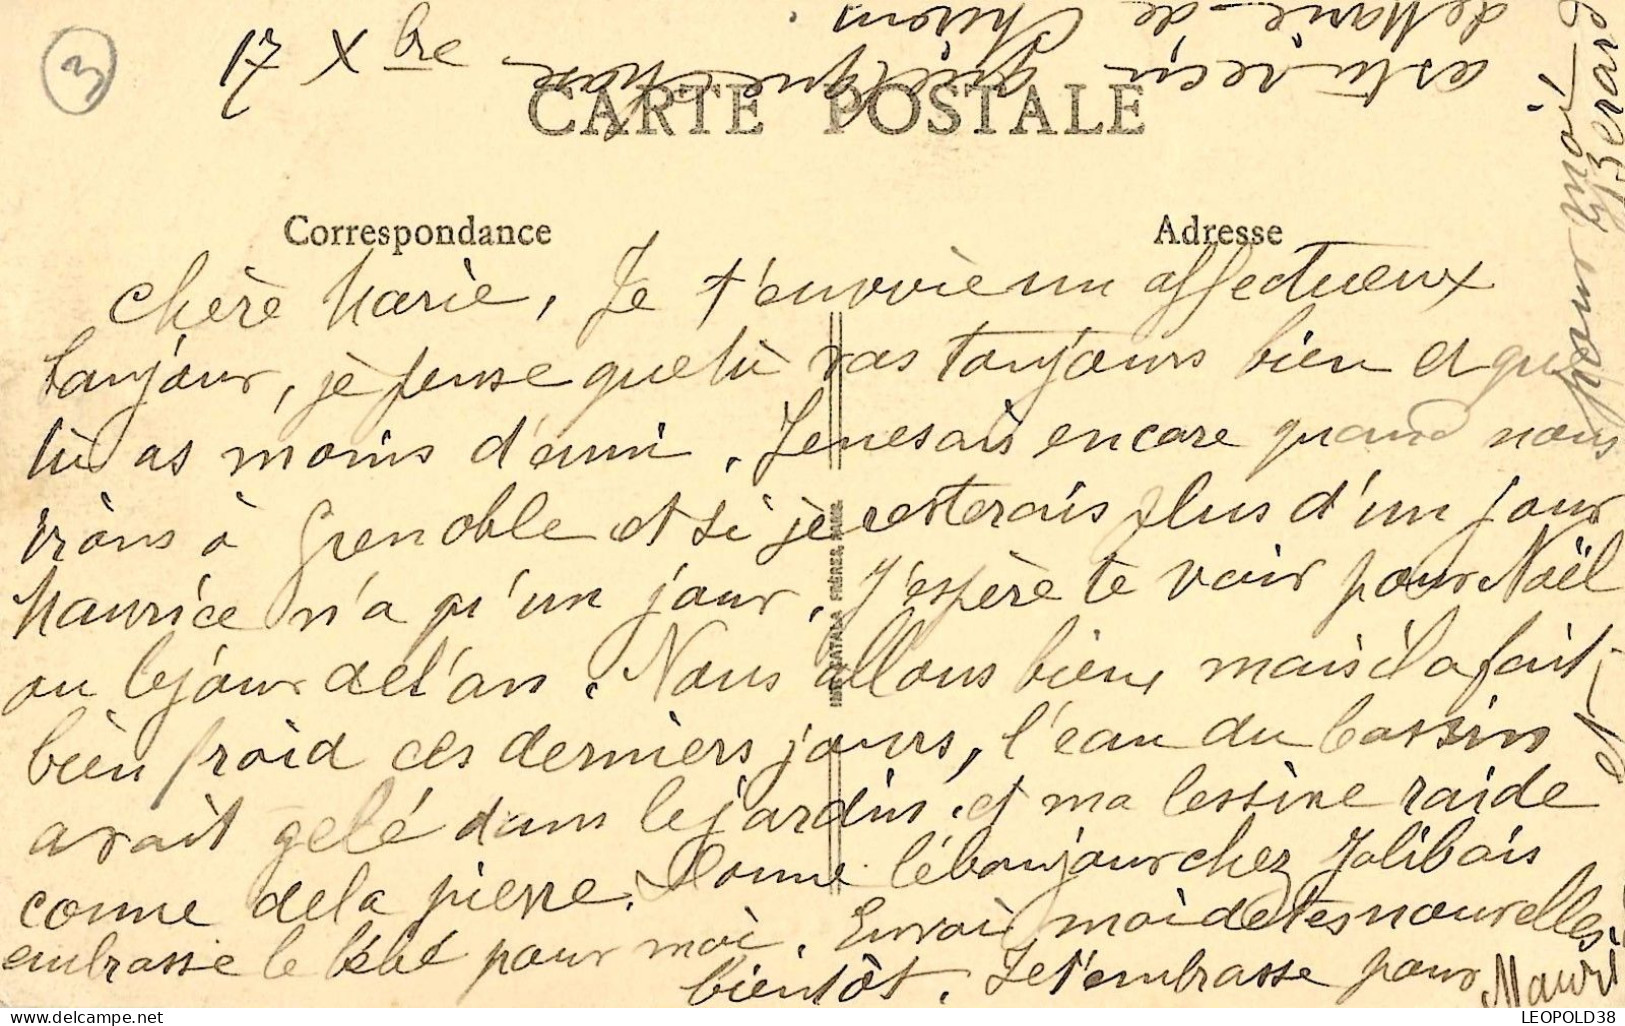 3
17 Xbre
CARTE POSTALE
Correspondance
Adresse
Chère Marie, Je t'envoie un affectueux
bonjour, je pense que tu vas toujours bien et que
tu as moins d'enni. Je ne sais encore quand nous
irons à Grenoble et si je resterais plus d'un jour
Maurice n'a qu'un jour. J'espère te voir pour Noël
ou le jour de l'an. Nous allons bien, mais il a fait
bien froid ces derniers jours, l'eau du bassin
avait gelé dans le jardin. et ma lessive raide
comme de la pierre. Donne le bonjour chez Jolibois
embrasse le bébé pour moi. Envoie moi de tes nouvelles
bientôt. Je t'embrasse pour Mauri
et
pour moi.
Berard
as tu reçu quelque chose
de Marie de Chirens
IMP. CATALA FRÈRES, PARIS
LEOPOLD38